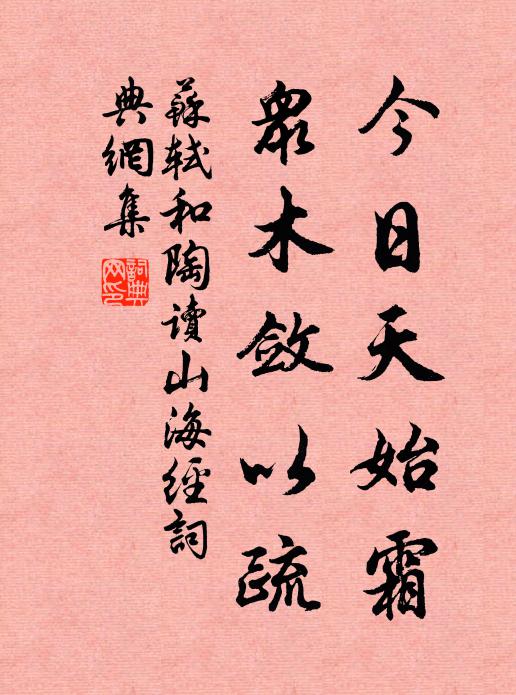 今日天始霜
眾木斂以疏
蘇軾和陶讀山海經詞
典網集
詞典
网印